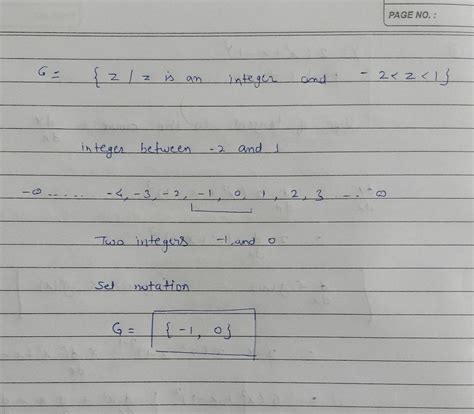 PAGE NO. :
G = { z / z is an integer and - 2 < z < 1 }
integer between -2 and 1
-∞ ..... -4, -3, -2, -1, 0, 1, 2, 3 ... ∞
Two integers -1, and 0
set notation
G = { -1, 0 }